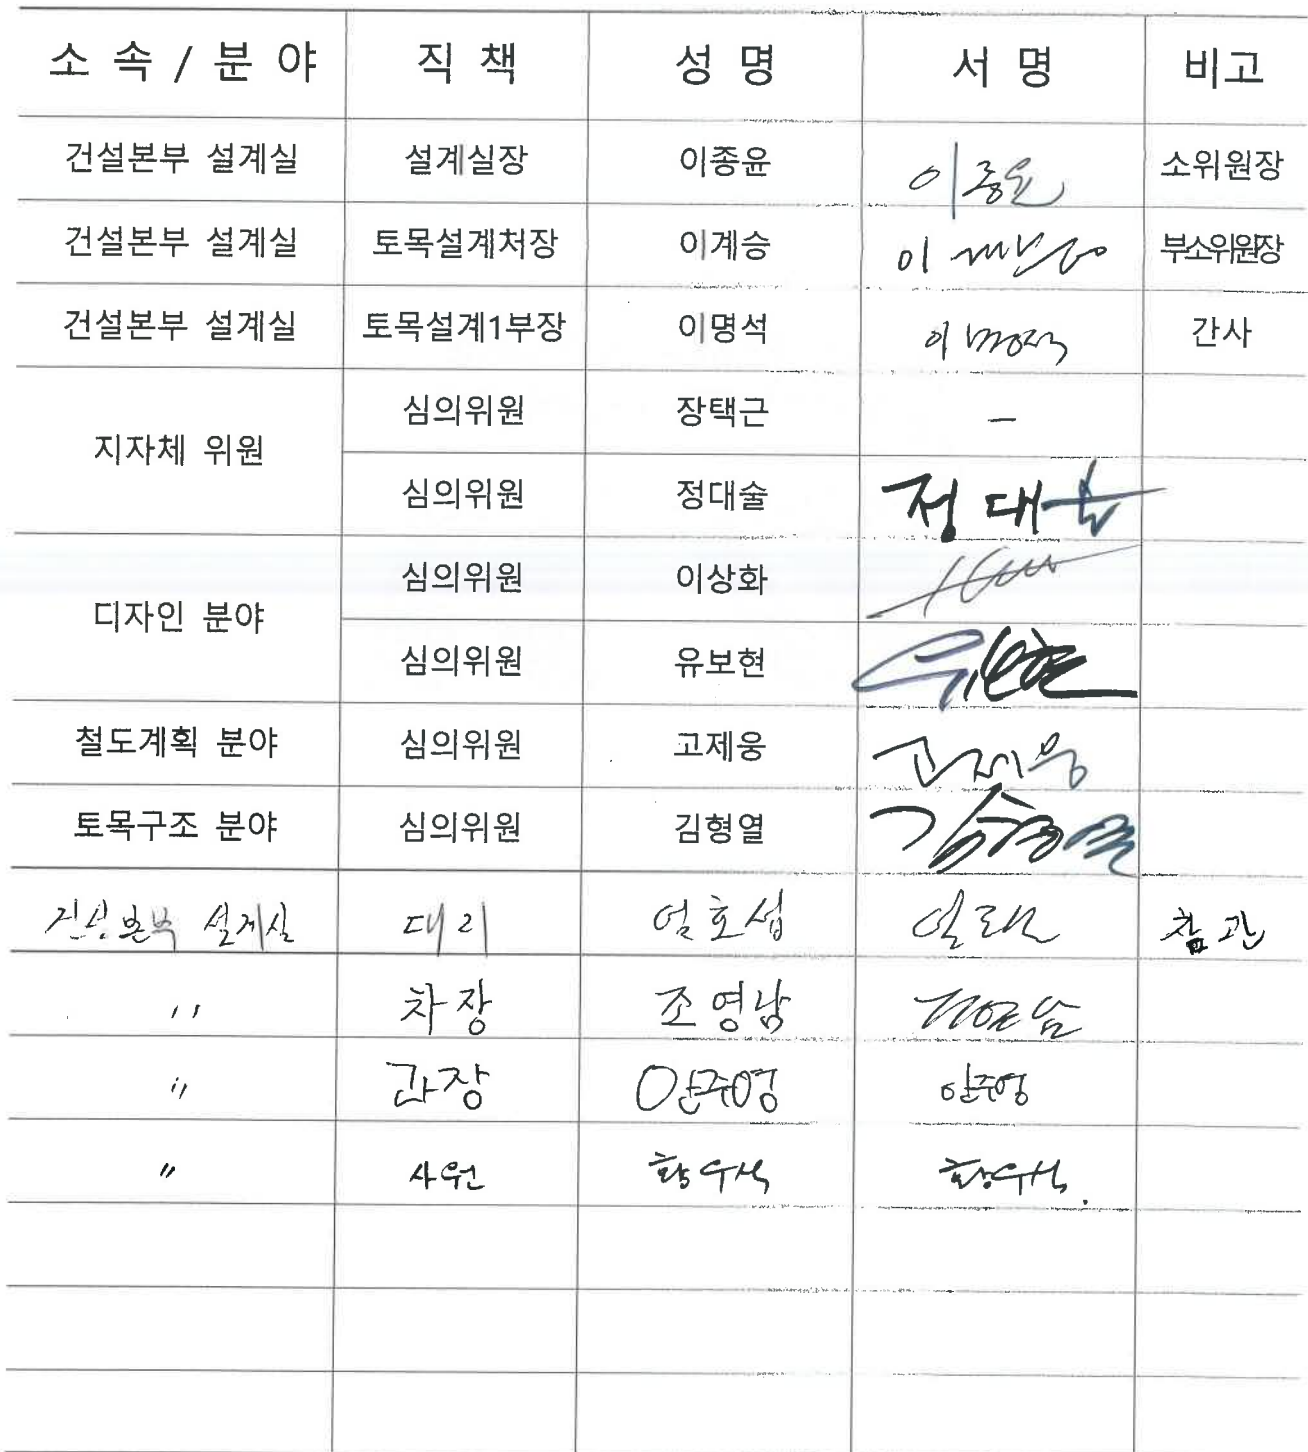 소 속 / 분 야 직 책 성 명 서 명 비고
건설본부 설계실 설계실장 이종윤 이종윤 소위원장
건설본부 설계실 토목설계처장 이계승 이 부소위원장
건설본부 설계실 토목설계1부장 이명석 이명석 간사
지자체 위원
심의위원 장택근 -
심의위원 정대술 정대술
디자인 분야
심의위원 이상화
심의위원 유보현 유보현
철도계획 분야 심의위원 고제웅 고제웅
토목구조 분야 심의위원 김형열 김형열
건설본부 설계실 대리 엄호섭 참관
〃 차장 조영남
〃 과장 안주영 안주영
〃 사원 황우석 황우석.